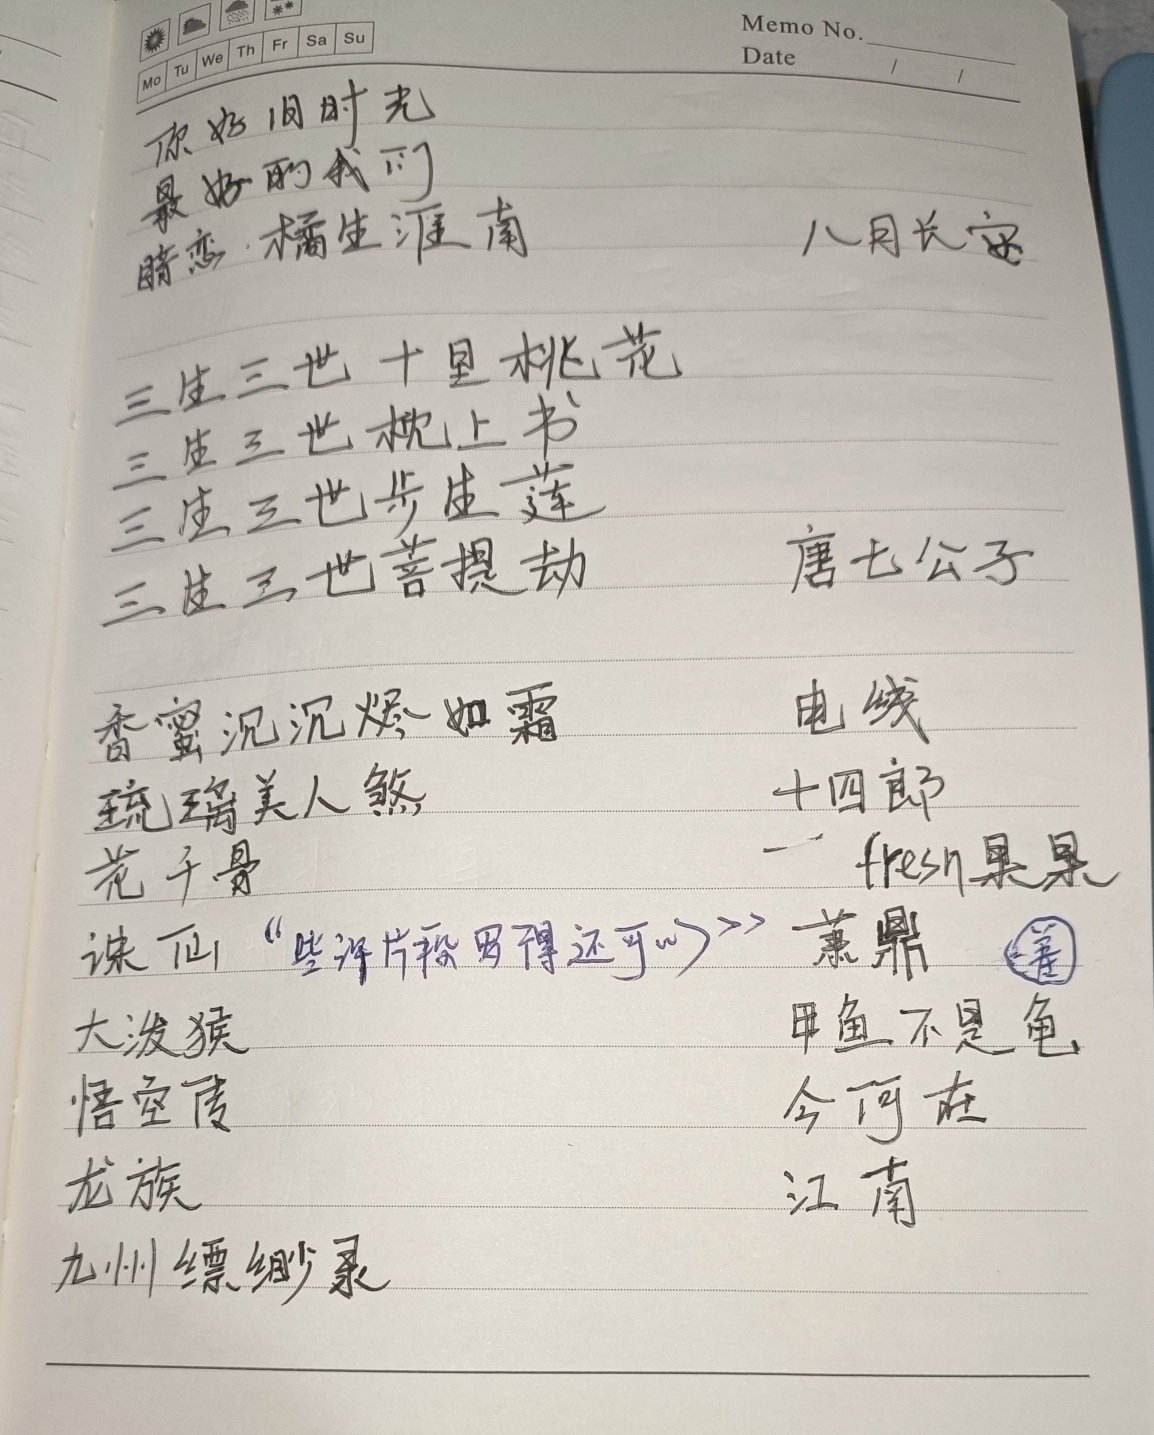 Memo No.
Mo Tu We Th Fr Sa Su
Date / /
你好旧时光
最好的我们
暗恋·橘生淮南 八月长安
三生三世十里桃花
三生三世枕上书
三生三世步生莲
三生三世菩提劫 唐七公子
香蜜沉沉烬如霜 电线
琉璃美人煞 十四郎
花千骨 fresh果果
诛仙 “些许片段写得还可以>>> 萧鼎
大泼猴 甲鱼不是龟
悟空传 今何在
龙族 江南
九州缥缈录